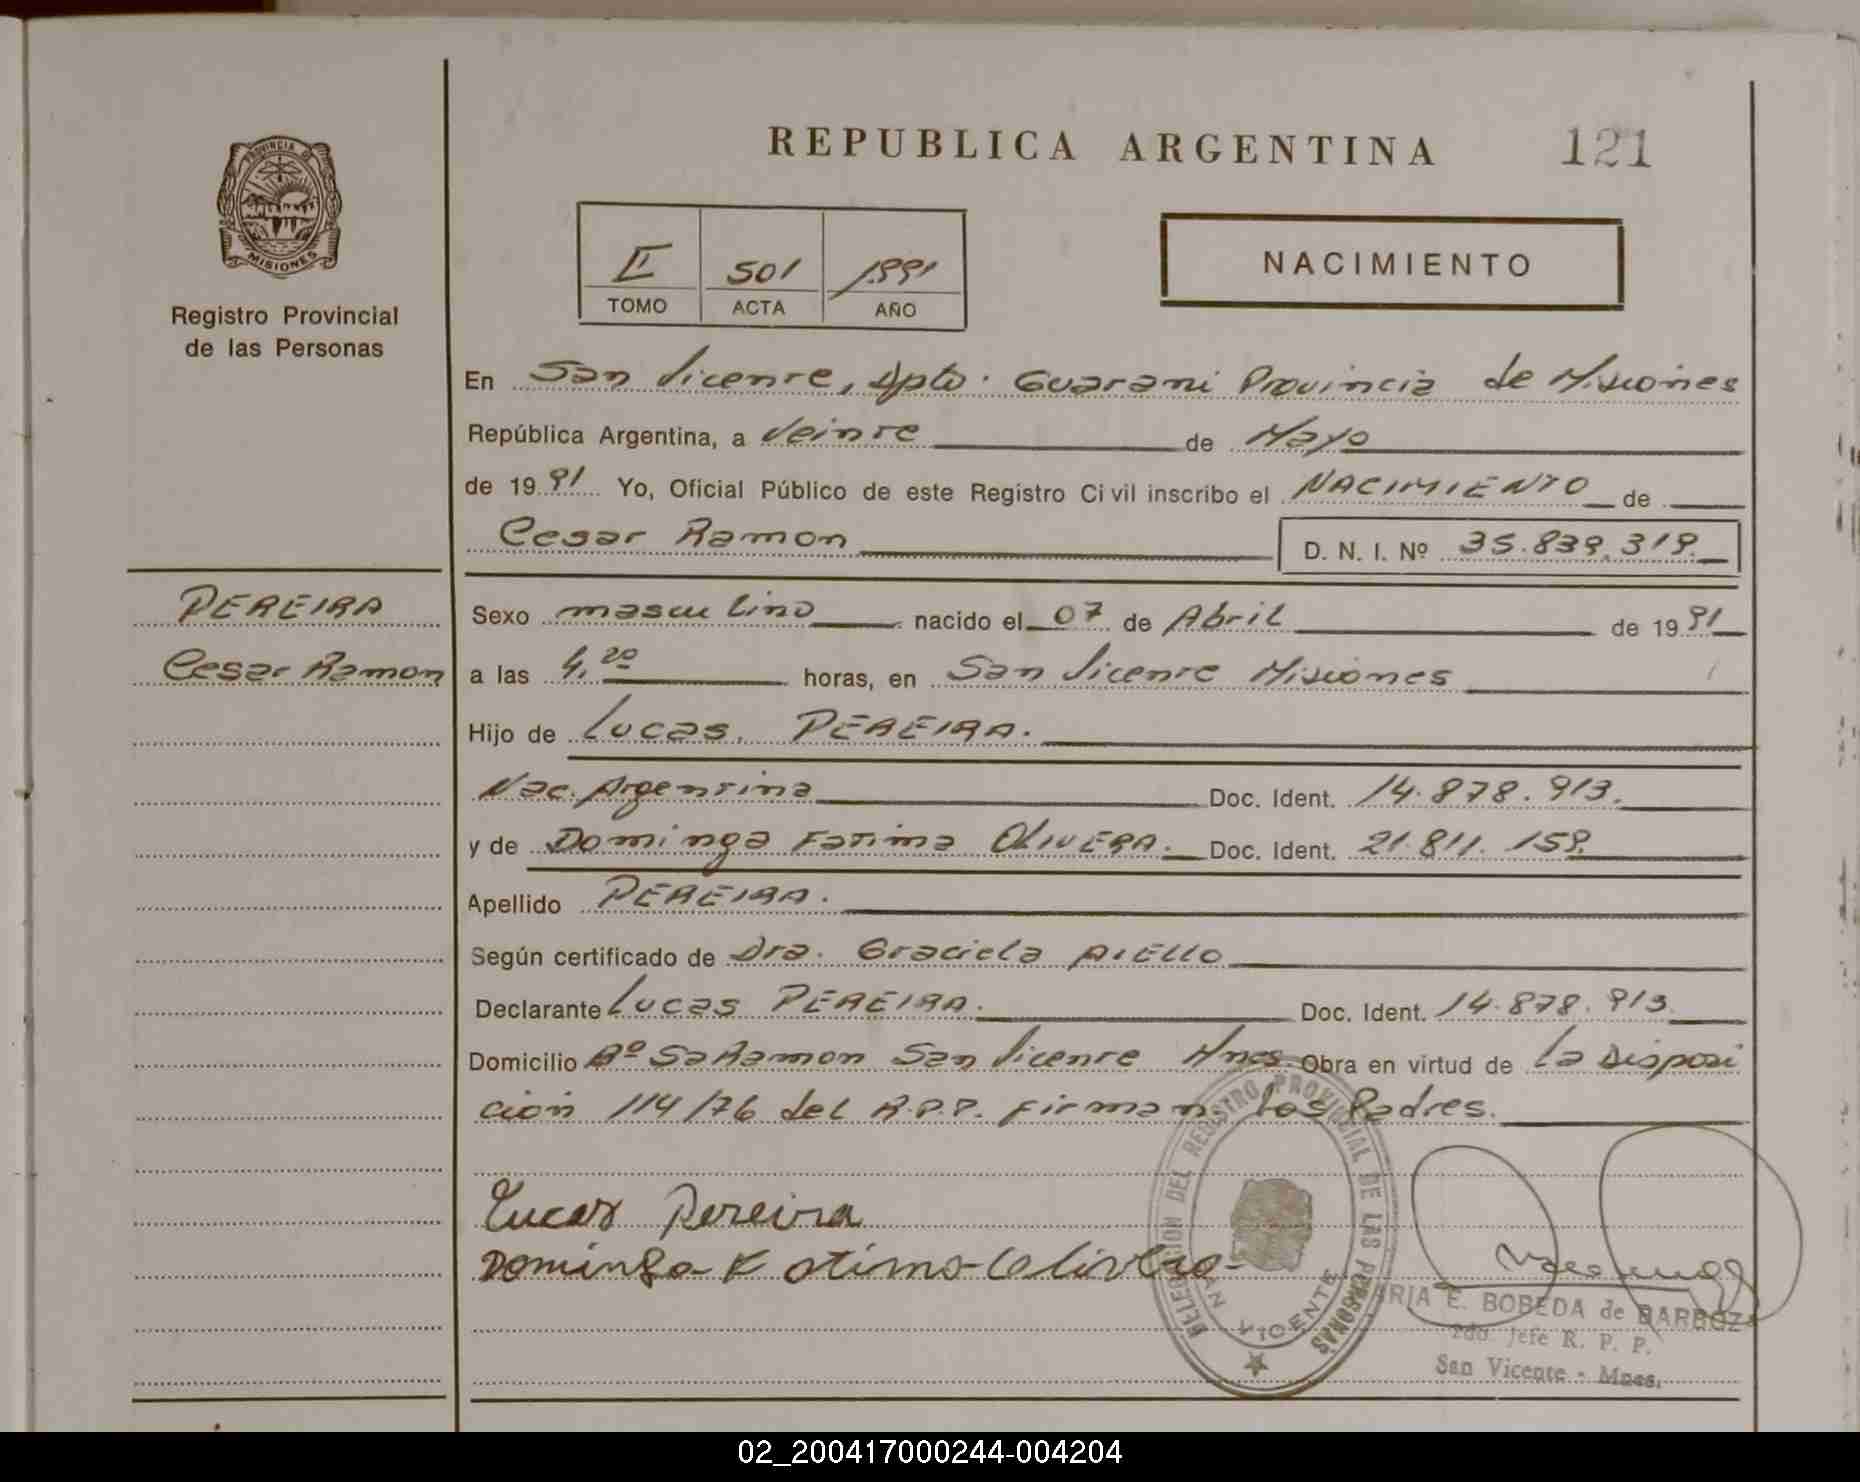 REPUBLICA ARGENTINA
121
PROVINCIA DE
MISIONES
Registro Provincial
de las Personas
II 501 1991
TOMO ACTA AÑO
NACIMIENTO
En San Vicente, Dpto. Guarani Provincia de Misiones
República Argentina, a Veinte de Mayo
de 1991 Yo, Oficial Público de este Registro Civil inscribo el NACIMIENTO de
Cesar Ramon D. N. I. Nº 35.839.319.
PEREIRA
Cesar Ramon
Sexo masculino nacido el 07 de Abril de 1991
a las 4,20 horas, en San Vicente Misiones
Hijo de Lucas. PEREIRA.
Nac. Argentina Doc. Ident. 14.878.913.
y de Dominga Fatima OLIVERA. Doc. Ident. 21.811.159.
Apellido PEREIRA.
Según certificado de Dra. Graciela AIELLO
Declarante Lucas PEREIRA. Doc. Ident. 14.878.913.
Domicilio Bº SaRamon San Vicente Mnes. Obra en virtud de la Disposi
ción 114/76 del R.P.P. Firman los Padres.
Lucas Pereira
Dominga Fatima Olivera
DELEGACION DEL REGISTRO PROVINCIAL DE LAS PERSONAS
SAN VICENTE
MARIA E. BOBEDA de BARBOZA
2do Jefe R. P. P.
San Vicente - Mnes.
02_200417000244-004204